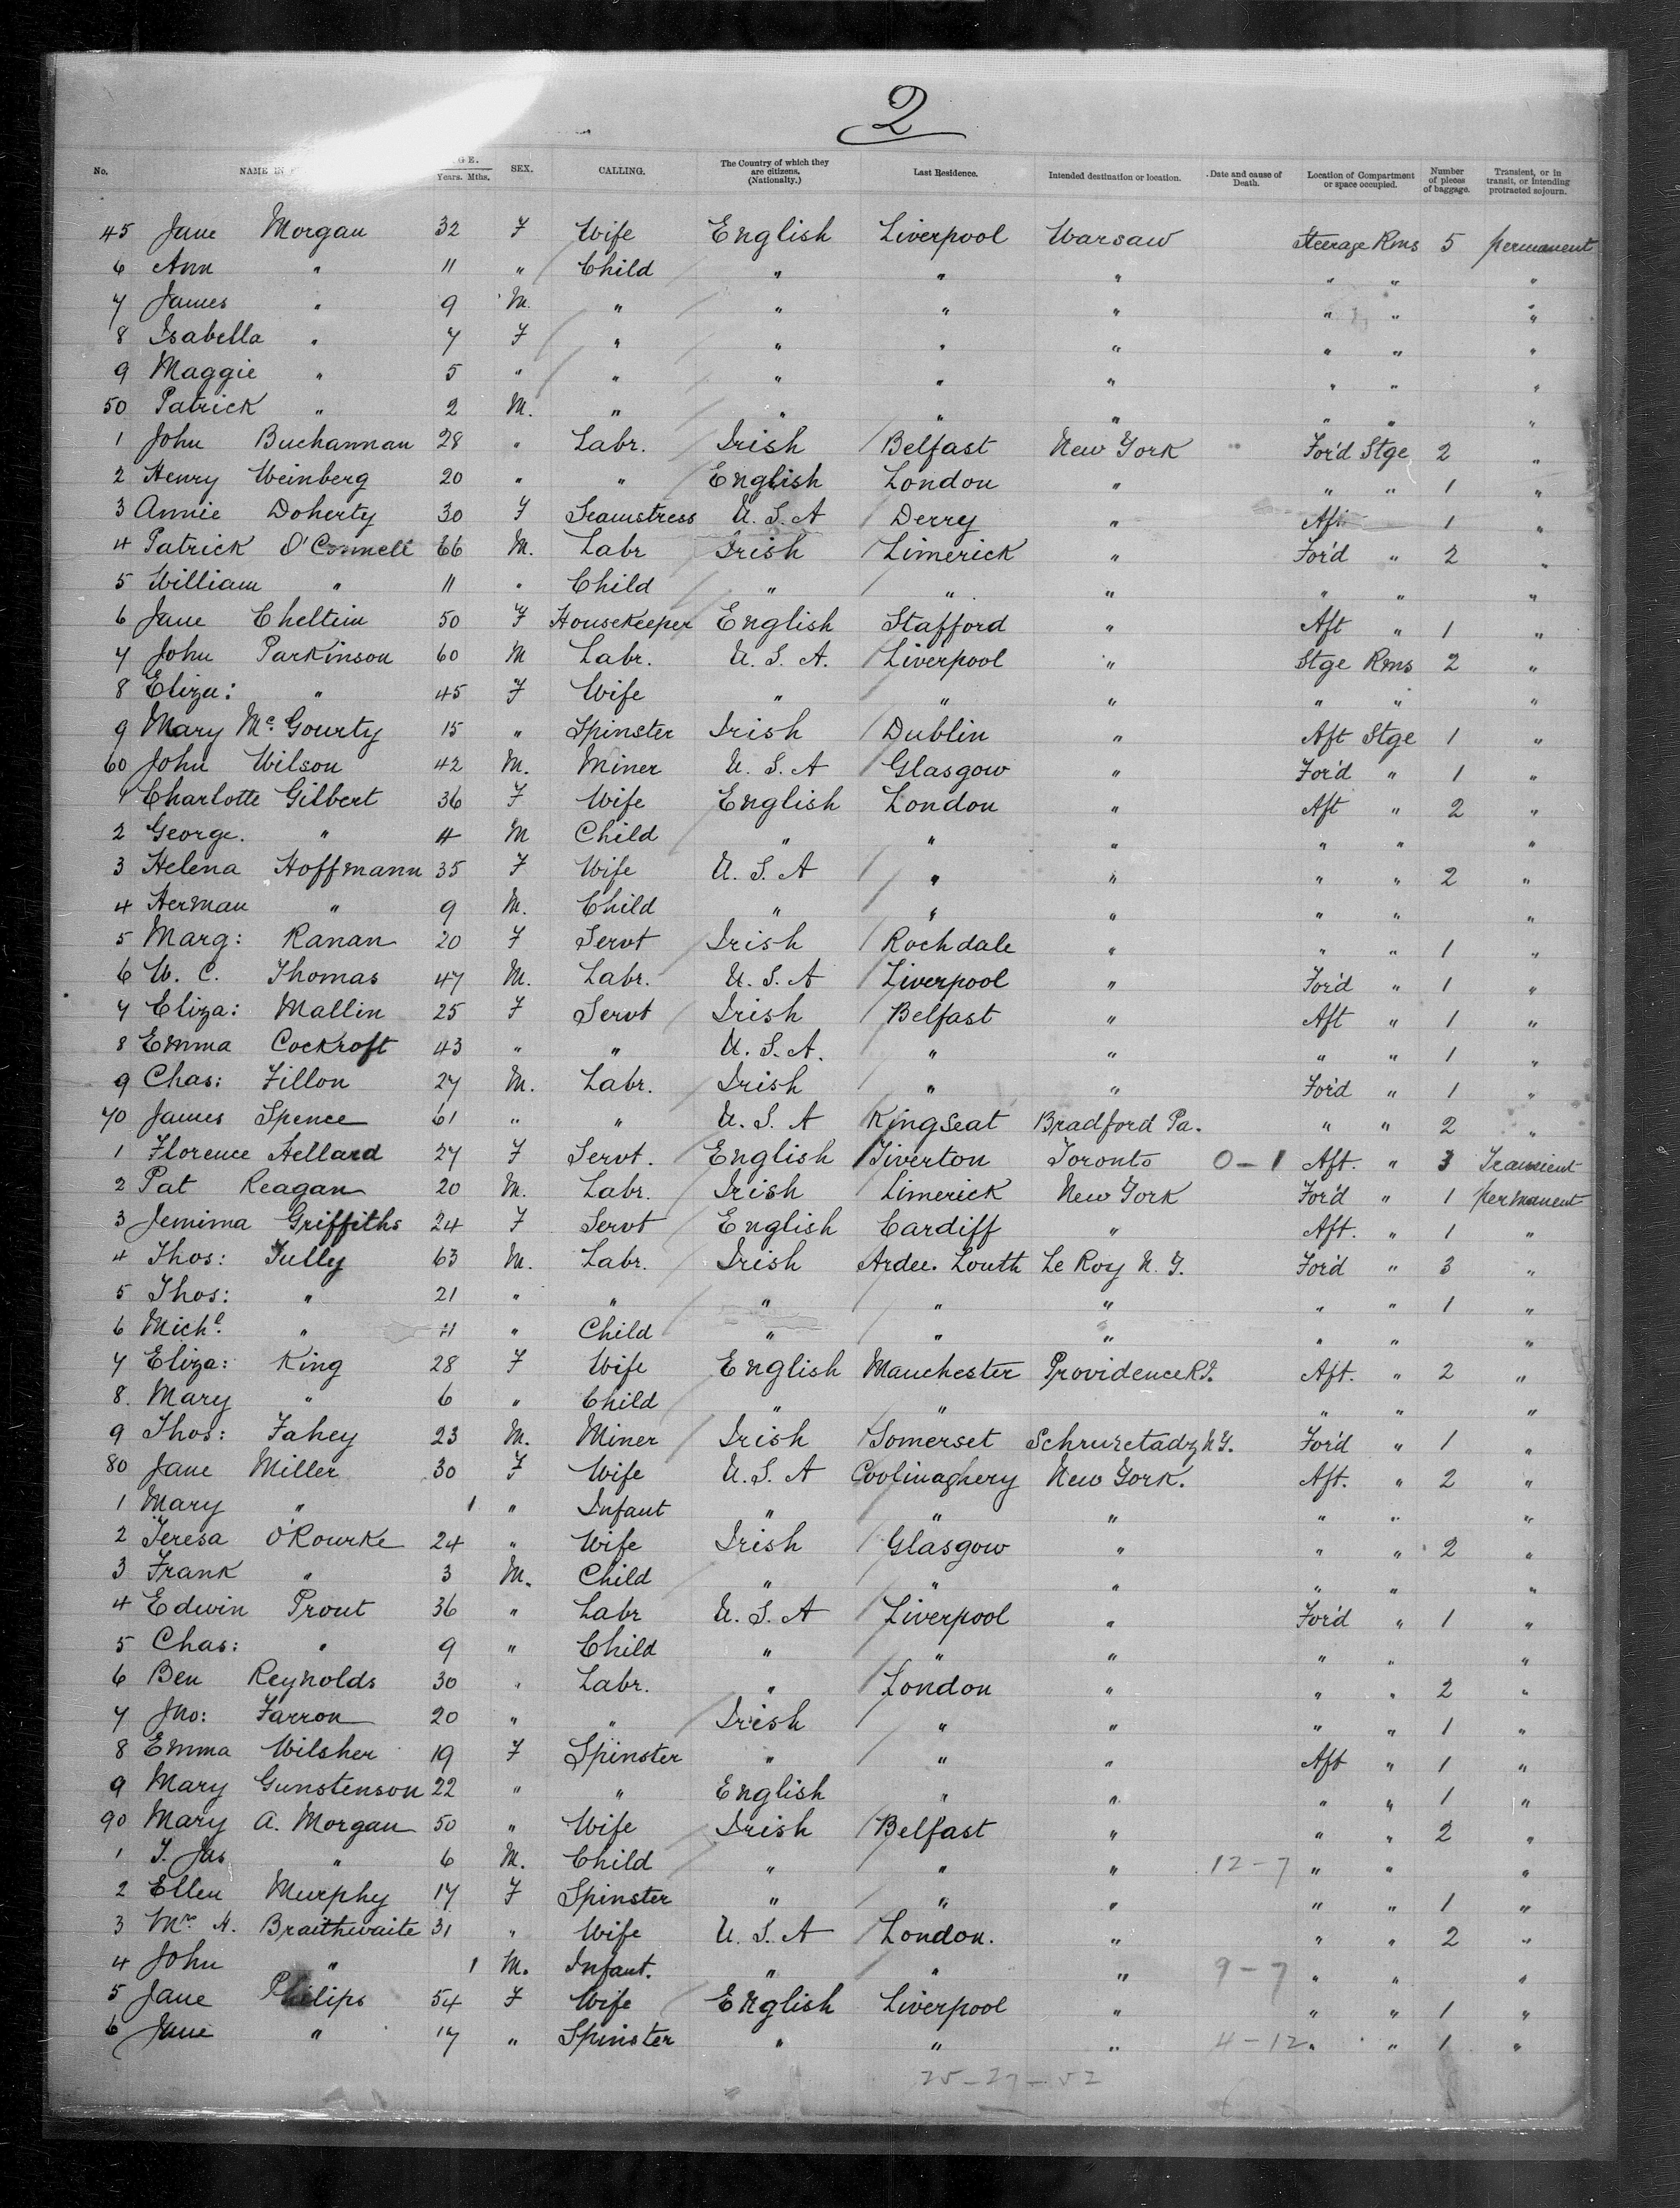 2
No. NAME IN AGE. Years. Mths. SEX. CALLING. The Country of which they are citizens. (Nationality.) Last Residence. Intended destination or location. Date and cause of Death. Location of Compartment or space occupied. Number of pieces of baggage. Transient, or in transit, or intending protracted sojourn.
45 Jane Morgan 32 F Wife English Liverpool Warsaw Steerage Rms 5 permanent
6 Ann " 11 " Child " " " " " "
7 James " 9 M. " " " " " " "
8 Isabella " 7 F " " " " " " "
9 Maggie " 5 " " " " " " " "
50 Patrick " 2 M. " " " " " " "
1 John Buchannan 28 " Labr. Irish Belfast New York For'd Stge 2 "
2 Henry Weinberg 20 " " English London " " " 1 "
3 Annie Doherty 30 F Seamstress U.S.A Derry " Aft 1 "
4 Patrick O'Connell 66 M. Labr Irish Limerick " For'd " 2 "
5 William " 11 " Child " " " " " "
6 Jane Cheltim 50 F Housekeeper English Stafford " Aft " 1 "
7 John Parkinson 60 M Labr. U.S.A. Liverpool " Stge Rms 2 "
8 Eliza: " 45 F Wife " " " " " "
9 Mary Mc Gourty 15 " Spinster Irish Dublin " Aft Stge 1 "
60 John Wilson 42 M. Miner U.S.A Glasgow " For'd " 1 "
1 Charlotte Gilbert 36 F Wife English London " Aft " 2 "
2 George. " 4 M Child " " " " " "
3 Helena Hoffmann 35 F Wife U.S.A " " " " 2 "
4 Herman " 9 M. Child " " " " " "
5 Marg: Ranan 20 F Servt Irish Rochdale " " " 1 "
6 W. C. Thomas 47 M. Labr. U.S.A Liverpool " For'd " 1 "
7 Eliza: Mallin 25 F Servt Irish Belfast " Aft " 1 "
8 Emma Cockroft 43 " " U.S.A. " " " " 1 "
9 Chas: Fillon 27 M. Labr. Irish " " For'd " 1 "
70 James Spence 61 " " U.S.A Kingseat Bradford Pa. " " 2 "
1 Florence Hellard 27 F Servt. English Tiverton Toronto 0-1 Aft. " 3 Transient
2 Pat Reagan 20 M. Labr. Irish Limerick New York For'd " 1 permanent
3 Jemima Griffiths 24 F Servt English Cardiff " Aft. " 1 "
4 Thos: Tully 63 M. Labr. Irish Ardee. Louth Le Roy N.Y. For'd " 3 "
5 Thos: " 21 " " " " " " " 1 "
6 Michl. " 11 " Child " " " " " "
7 Eliza: King 28 F Wife English Manchester Providence R.I. Aft. " 2 "
8. Mary " 6 " Child " " " " "
9 Thos: Fahey 23 M. Miner Irish Somerset N.Y. For'd " 1 "
80 Jane Miller 30 F Wife U.S.A Coolinaghery New York. Aft. " 2 "
1 Mary " 1 " Infant " " " " " "
2 Teresa O'Rourke 24 " Wife Irish Glasgow " " " 2 "
3 Frank " 3 M. Child " " " " " "
4 Edwin Prout 36 " Labr U.S.A Liverpool " For'd " 1 "
5 Chas: " 9 " Child " " " " " "
6 Ben Reynolds 30 " Labr. " London " " " 2 "
7 Jno: Farron 20 " " Irish " " " " 1 "
8 Emma Wilsher 19 F Spinster " " " Aft " 1 "
9 Mary Gunstenson 22 " " English " " " " 1 "
90 Mary A. Morgan 50 " Wife Irish Belfast " " " 2 "
1 T. Jas " 6 M. Child " " " 12-7 " " "
2 Ellen Murphy 17 F Spinster " " " " " 1 "
3 Mrs H. Braithwaite 31 " Wife U.S.A London. " " " 2 "
4 John " 1 M. Infant. " " " 9-7 " " "
5 Jane Philips 54 F Wife English Liverpool " " " 1 "
6 Jane " 17 " Spinster " " " 4-12 " " 1 "
25-27-52